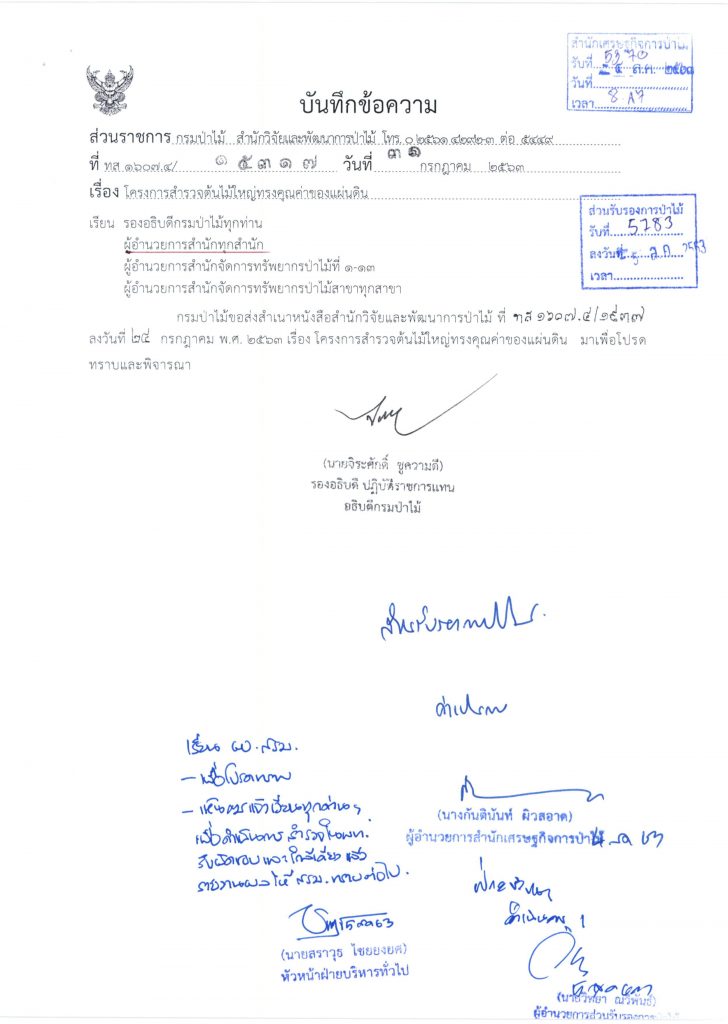 สำนักเศรษฐกิจการป่าไม้
รับที่ 5370
วันที่ ๔ ส.ค. ๒๕๖๓
เวลา
บันทึกข้อความ
ส่วนราชการ กรมป่าไม้ สำนักวิจัยและพัฒนาการป่าไม้ โทร. ๐ ๒๕๖๑ ๔๒๙๒-๓ ต่อ ๕๔๔๙
ที่ ทส ๑๖๐๗.๔/ ๑๕๓๑๗ วันที่ ๓๑ กรกฎาคม ๒๕๖๓
เรื่อง โครงการสำรวจต้นไม้ใหญ่ทรงคุณค่าของแผ่นดิน
ส่วนรับรองการป่าไม้
รับที่ 5783
ลงวันที่ ส.ค. 2563
เวลา
เรียน รองอธิบดีกรมป่าไม้ทุกท่าน
ผู้อำนวยการสำนักทุกสำนัก
ผู้อำนวยการสำนักจัดการทรัพยากรป่าไม้ที่ ๑-๑๓
ผู้อำนวยการสำนักจัดการทรัพยากรป่าไม้สาขาทุกสาขา
กรมป่าไม้ขอส่งสำเนาหนังสือสำนักวิจัยและพัฒนาการป่าไม้ ที่ ทส ๑๖๐๗.๔/๑๙๓๗
ลงวันที่ ๒๔ กรกฎาคม พ.ศ. ๒๕๖๓ เรื่อง โครงการสำรวจต้นไม้ใหญ่ทรงคุณค่าของแผ่นดิน มาเพื่อโปรด
ทราบและพิจารณา
(นายจิระศักดิ์ ชูความดี)
รองอธิบดี ปฏิบัติราชการแทน
อธิบดีกรมป่าไม้
เรียน ผอ.สรม.
- เพื่อโปรดทราบ
- เห็นควรแจ้งเวียนทุกส่วนฯ
เพื่อดำเนินการสำรวจในพท.
รับผิดชอบและใกล้เคียง แล้ว
รายงานผลให้ สรม. ทราบต่อไป.
(นายสราวุธ ไชยยงยศ)
หัวหน้าฝ่ายบริหารทั่วไป
(นางกันตินันท์ ผิวสอาด)
ผู้อำนวยการสำนักเศรษฐกิจการป่าไม้
ผู้อำนวยการส่วนรับรองการป่าไม้